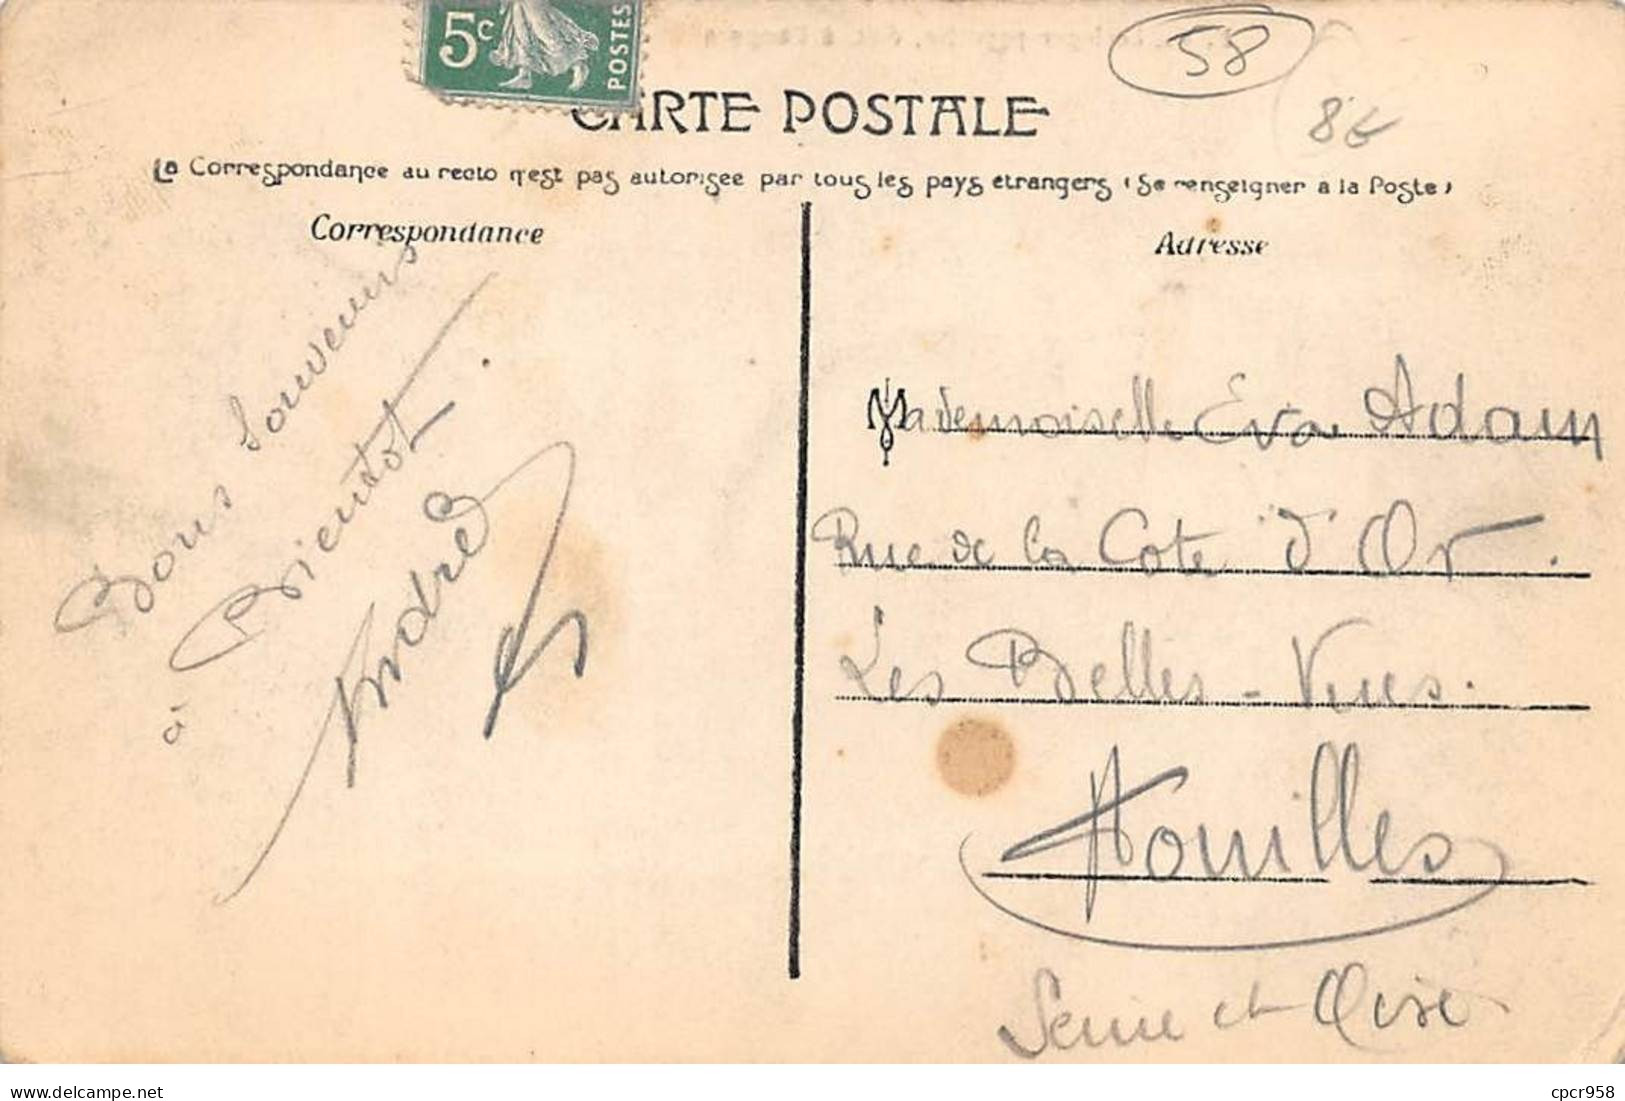 5c
POSTES
58
8€
CARTE POSTALE
La Correspondance au recto n'est pas autorisée par tous les pays étrangers (Se renseigner à la Poste)
Correspondance
Adresse
Bons Souvenirs
à Bientôt
André
Mademoiselle Eva Adam
Rue de la Cote d'Or.
Les Belles-Vues.
Houilles
Seine et Oise
cpcr958